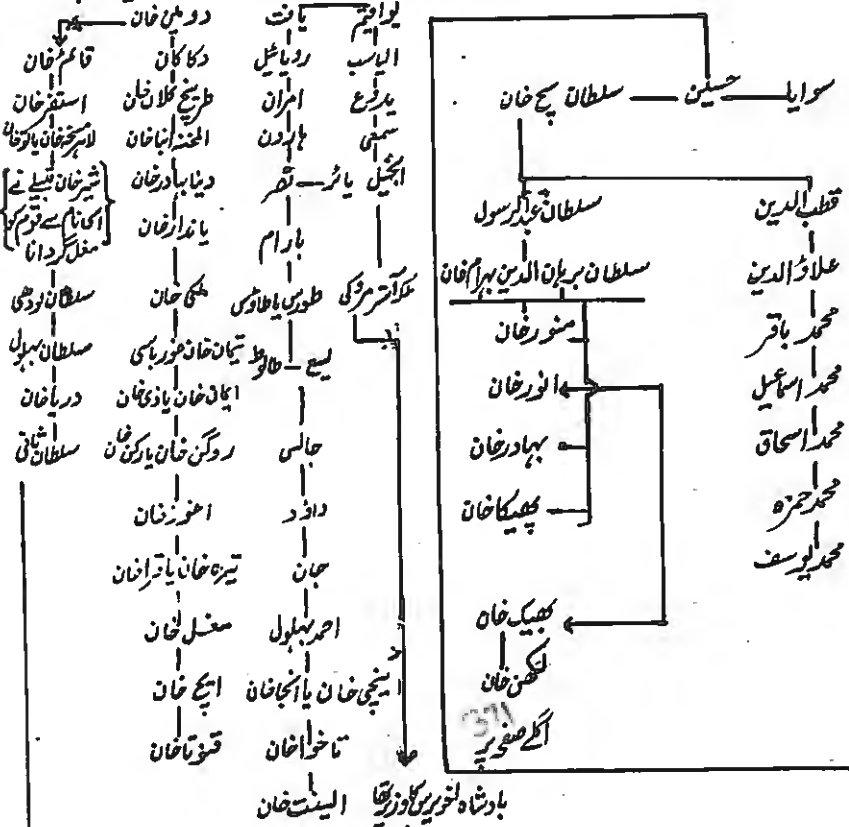 سوایا حسلین سلطان سج خان
قطب الدین
علاؤالدین
محمد باقر
محمد اسماعیل
محمد اسحاق
محمد حمزہ
محمد یوسف
سلطان عبدالرسول
سلطان برہان الدین بہرام خان
منور خان
انور خان
بہادر خان
پھیکا خان
بھیک خان
لکھن خان
اگلے صفحہ پر
یوافیم
الیاسب
یدوع
سمعی
ابخیل یائر
ملکوآشر مروکی
بادشاہ لخویریس کا وزیر تھا
یافت
رویائیل
امران
ہارون
نصر
بارام
طورس یا طاؤس
لیسع طالوط
جالس
داؤد
جان
احمد بہلول
اینچی خان یا انجاخان
تاخواخان
الینت خان
دو ملی خان
دکاکان
طریخ کلان خان
المخنہ انباخان
دینا بہادر خان
یاندار خان
ملکی خان
تیمان خان خورباسی
ایمان خان یا ذی خان
روگن خان یا رکن خان
اغوز خان
تیزہ خان یا قرا خان
مغل خان
ایچ خان
قنوتا خان
قائم خان
استقر خان
شیر خان قبیلے نے
اسی نام سے قوم کو
مغل گردانا
سلطان لودھی
سلطان بہلول
دریا خان
سلطان ثانی